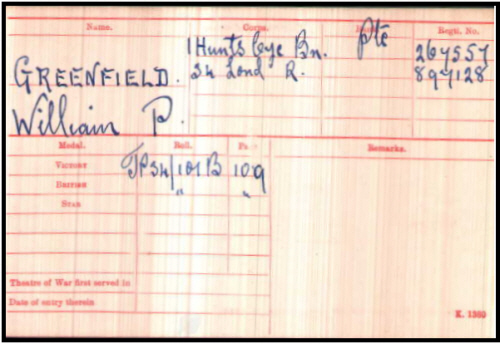 Name. Corps. Rank. Regtl. No.
1 Hunts Cyc Bn. Pte 267557
GREENFIELD. 34 Lond R. 897128
William P.
Medal. Roll. Page. Remarks.
Victory TP34/101 B 109
British " "
Star
Theatre of War first served in
Date of entry therein
K. 1380